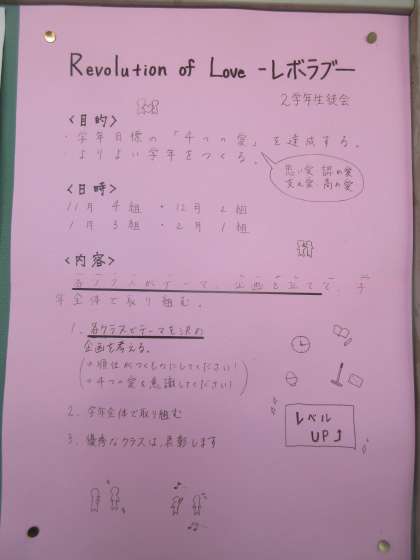 Revolution of Love -レボラブー
2学年生徒会
<目的>
・学年目標の「4つの愛」を達成する。
・よりよい学年をつくる。
思い愛 認め愛
支え愛 高め愛
<日時>
11月 4組 ・12月 2組
1月 3組 ・2月 1組
<内容>
各クラスがテーマ、企画を立てて、学
年全体で取り組む。
1. 各クラスでテーマを決め
企画を考える。
(→順位がつくものにしてください!
→4つの愛を意識してください!)
2. 学年全体で取り組む
3. 優秀なクラスは、表彰します
レベル
UP⤴